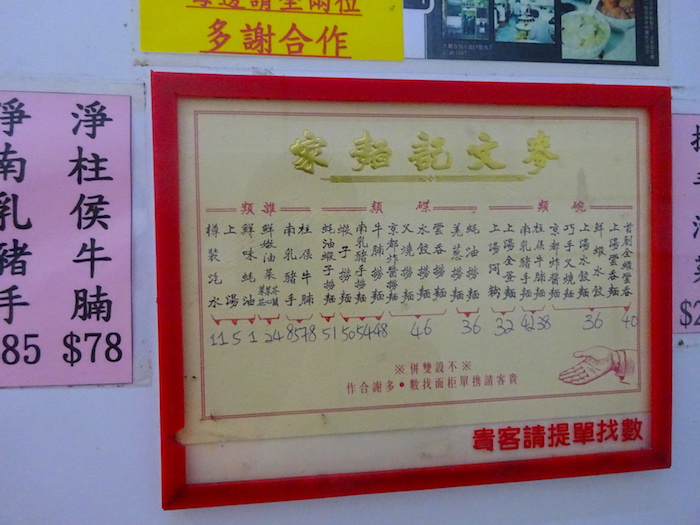 多謝合作
淨柱侯牛腩
$78
淨南乳豬手
麥文記麵家
碗類
首創全蝦雲吞
上湯雲吞麵
鮮蝦水餃
上湯水餃麵
巧手叉燒麵
京都炸醬麵
柱侯牛腩麵
南乳豬手麵
上湯全蛋麵
上湯河粉
40
36
38
42
32
碟類
蠔油撈麵
羌葱撈麵
雲吞撈麵
水餃撈麵
叉燒撈麵
京都炸醬撈麵
牛腩撈麵
南乳豬手撈麵
蝦子撈麵
蠔油蝦子撈麵
36
46
48
54
50
51
雜類
柱侯牛腩
南乳豬手
鮮嫩油菜
鮮味蠔油
上湯
樽裝汽水
78
85
24
1
5
11
※不設雙併※
貴客請携單柜面找數•多謝合作
貴客請提單找數